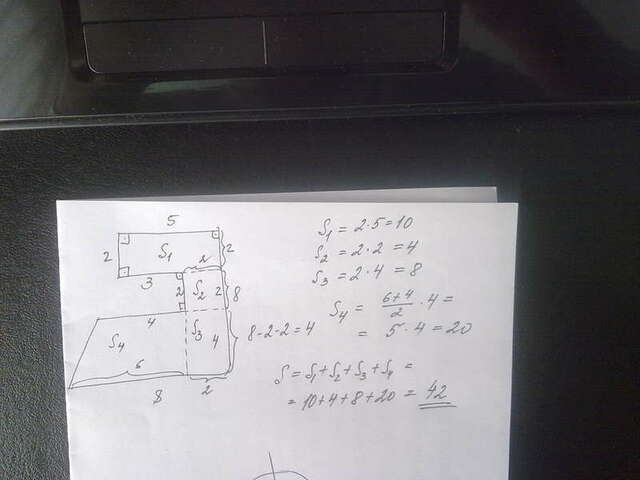 5
2
S₁
2
2
3
2
S₂
2
8
4
S₃
4
8-2-2=4
S₄
6
8
2
S₁ = 2·5=10
S₂ = 2·2 = 4
S₃ = 2·4 = 8
S₄ = (6+4)/2 · 4 =
= 5·4 = 20
S = S₁+S₂+S₃+S₄ =
= 10+4+8+20 = 42